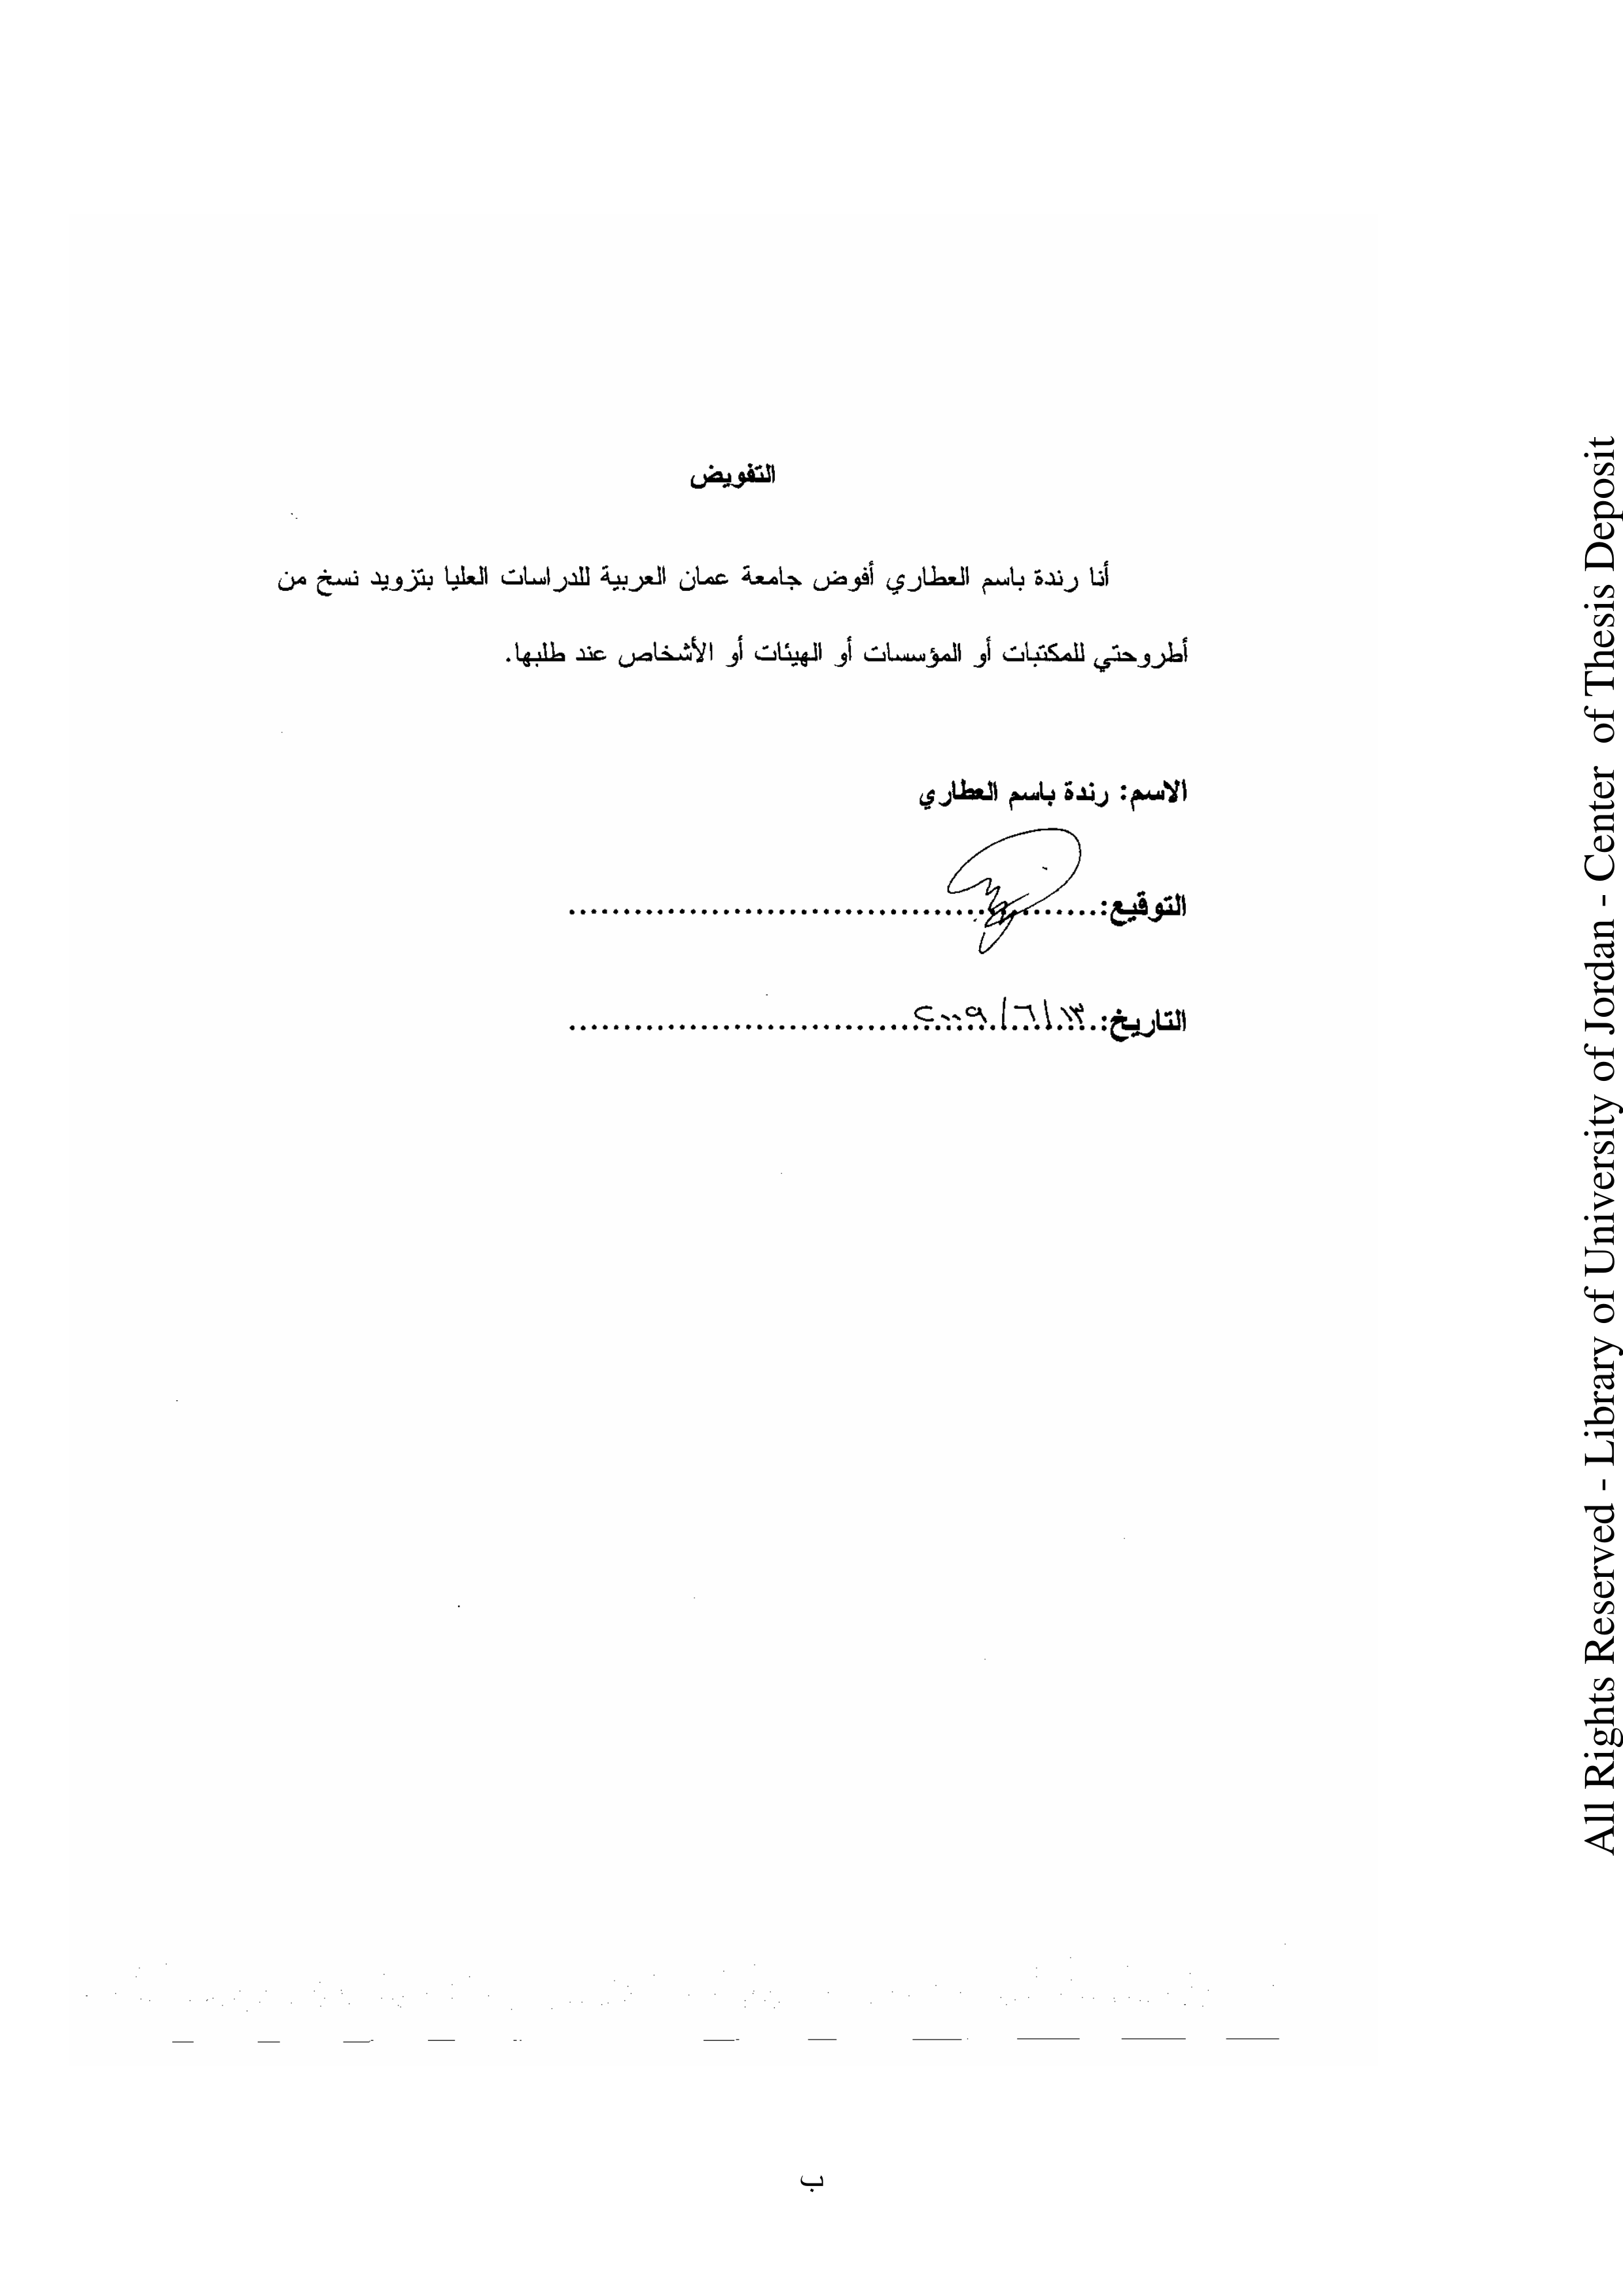 التفويض
أنا رندة باسم العطاري أفوض جامعة عمان العربية للدراسات العليا بتزويد نسخ من
أطروحتي للمكتبات أو المؤسسات أو الهيئات أو الأشخاص عند طلبها.
الاسم: رندة باسم العطاري
التوقيع:
التاريخ: ١٣/٦/٢٠٠٩
ب
All Rights Reserved - Library of University of Jordan - Center of Thesis Deposit